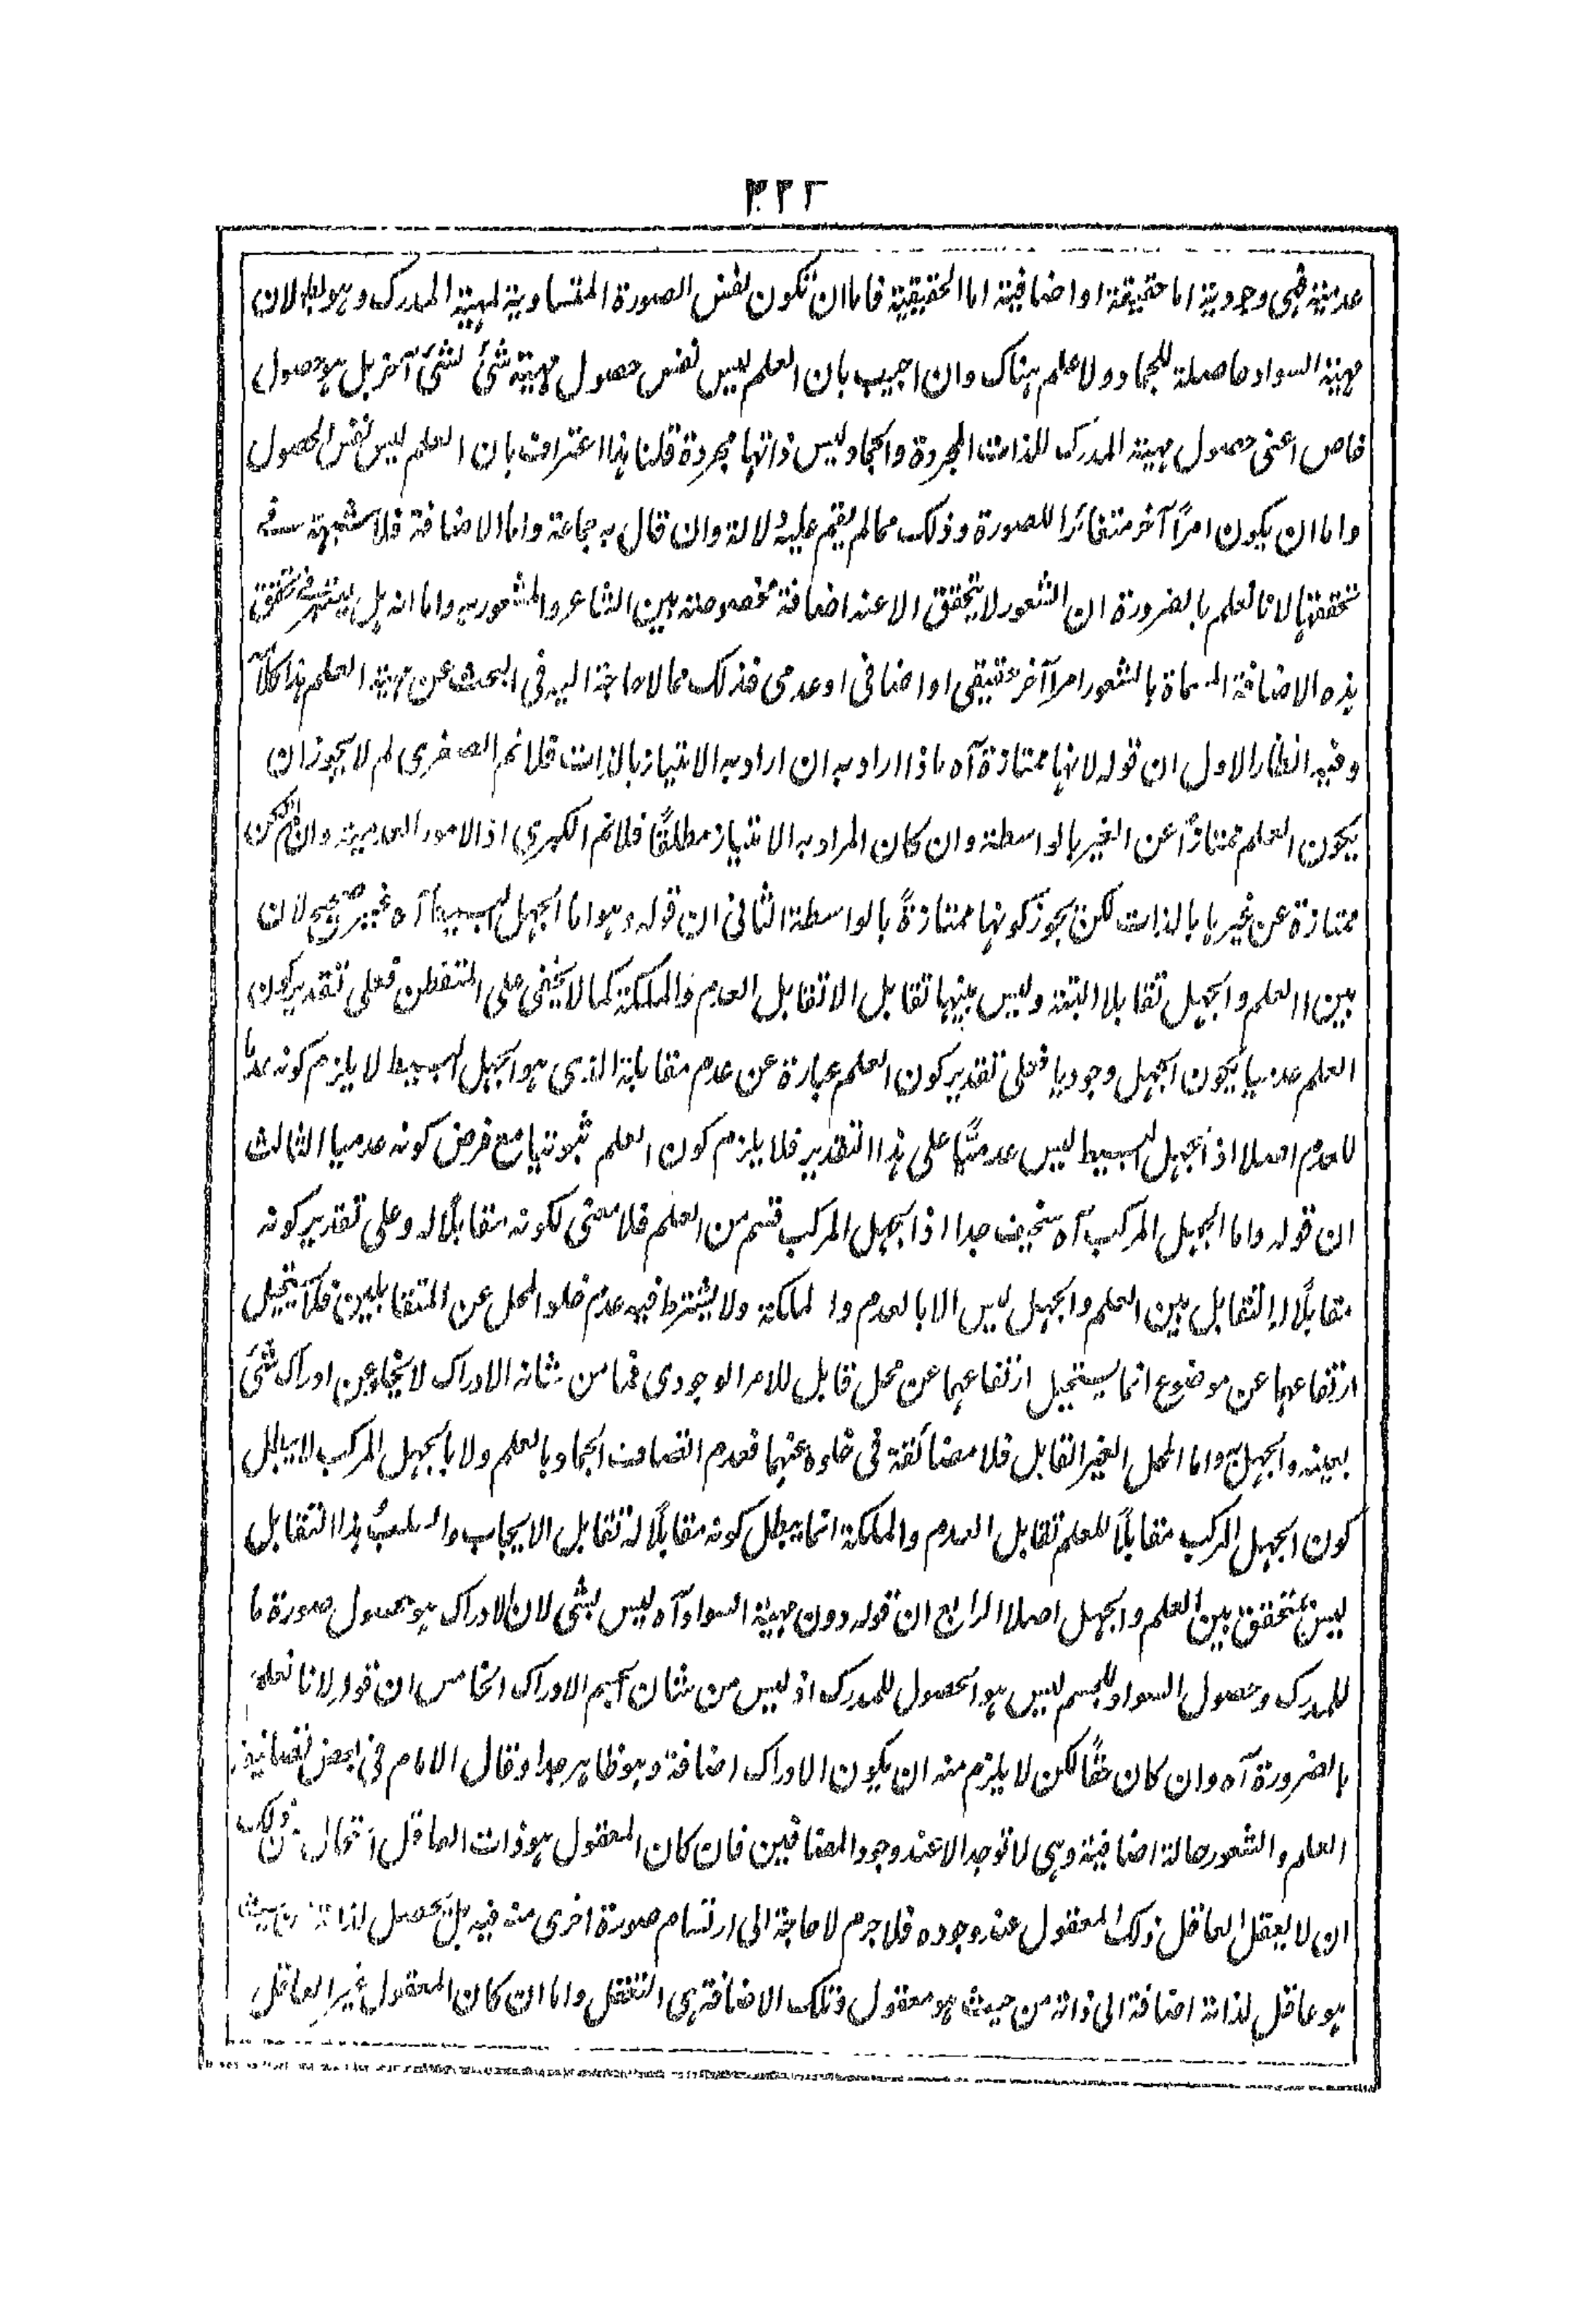 ٣٢٢
عدمية فهي وجودية اما حقيقة او اضافية اما الحقيقية فاما ان تكون نفس الصورة المتساوية لمهية المدرك وهو باطل لان
مهية السواد حاصلة للجماد ولا علم هناك وان اجيب بان العلم ليس نفس حصول مهية شئ لشئ آخر بل هو حصول
خاص اعنى حصول مهية المدرك للذات المجردة والجماد ليس ذاتها مجردة قلنا هذا اعتراف بان العلم ليس نفس الحصول
واما ان يكون امرًا آخر متغائرا للصورة وذلك مما لم يقم عليه دلالة وان قال به جماعة واما الاضافة فلا شبهة فى
تحققها لانا نعلم بالضرورة ان الشعور لا يتحقق الا عند اضافة مخصوصة بين الشاعر والمشعور به واما انه بل يعتبر فى تحقق
هذه الاضافة المسماة بالشعور امرا آخر حقيقى او اضافى او عدمى فذلك مما لا حاجة اليه فى البحث عن مهية العلم هذا كلامه
وفيه انظار الاول ان قوله لانها ممتازة آه ماذا اراد به ان اراد به الامتياز بالذات فلا نم الصغرى لم لا يجوز ان
يكون العلم ممتازًا عن الغير بالواسطة وان كان المراد به الامتياز مطلقًا فلا نم الكبرى اذ الامور العدمية وان لم تكن
ممتازة عن غيرها بالذات لكن يجوز كونها ممتازةً بالواسطة الثانى ان قوله وهو اما الجهل البسيط آه غير صحيح لان
بين العلم والجهل تقابلا البتة وليس بينهما تقابل الا تقابل العدم والملكة كما لا يخفى على المتفطن فعلى تقدير كون
العلم عدميا يكون الجهل وجوديا فعلى تقدير كون العلم عبارة عن عدم مقابلة الذى هو الجهل البسيط لا يلزم كونه عدما
للعدم اصلا اذ الجهل البسيط ليس عدميًّا على هذا التقدير فلا يلزم كون العلم ثبوتيا مع فرض كونه عدميا الثالث
ان قوله واما الجهل المركب آه سخيف جدا اذ الجهل المركب قسم من العلم فلا معنى لكونه مقابلًا له وعلى تقدير كونه
مقابلًا له التقابل بين العلم والجهل ليس الا بالعدم والملكة ولا يشترط فيه عدم خلو المحل عن المتقابلين فلا يستحيل
ارتفاعهما عن موضوع انما يستحيل ارتفاعهما عن محل قابل للامر الوجودى فما من شانه الادراك لا يخلو عن ادراك شئ
بعينه والجهل به واما المحل الغير القابل فلا مضائقة فى خلوه عنهما فعدم اتصاف الجماد بالعلم ولا بالجهل المركب لا يبطل
كون الجهل المركب مقابلًا للعلم تقابل العدم والملكة انما يبطل كونه مقابلًا له تقابل الايجاب والسلب وهذا التقابل
ليس بمتحقق بين العلم والجهل اصلا الرابع ان قوله دون مهية السواد آه ليس بشئ لان الادراك هو حصول صورة ما
للمدرك وحصول السواد للجسم ليس هو الحصول للمدرك اذ ليس من شان الجسم الادراك الخامس ان قوله لانا نعلم
بالضرورة آه وان كان حقًّا لكن لا يلزم منه ان يكون الادراك اضافة وهو ظاهر جدا وقال الامام فى بعض تصانيفه
العلم والشعور حالة اضافية وهى لا توجد الا عند وجود المضافين فان كان المعقول هو ذات العاقل
ان لا يعقل العاقل ذلك المعقول عند وجوده فلا جرم لا حاجة الى ارتسام صورة اخرى منه فيه بل تحصل لذاته من حيث
هو عاقل لذاته اضافة الى ذاته من حيث هو معقول وتلك الاضافة هى التعقل واما ان كان المعقول غير العاقل